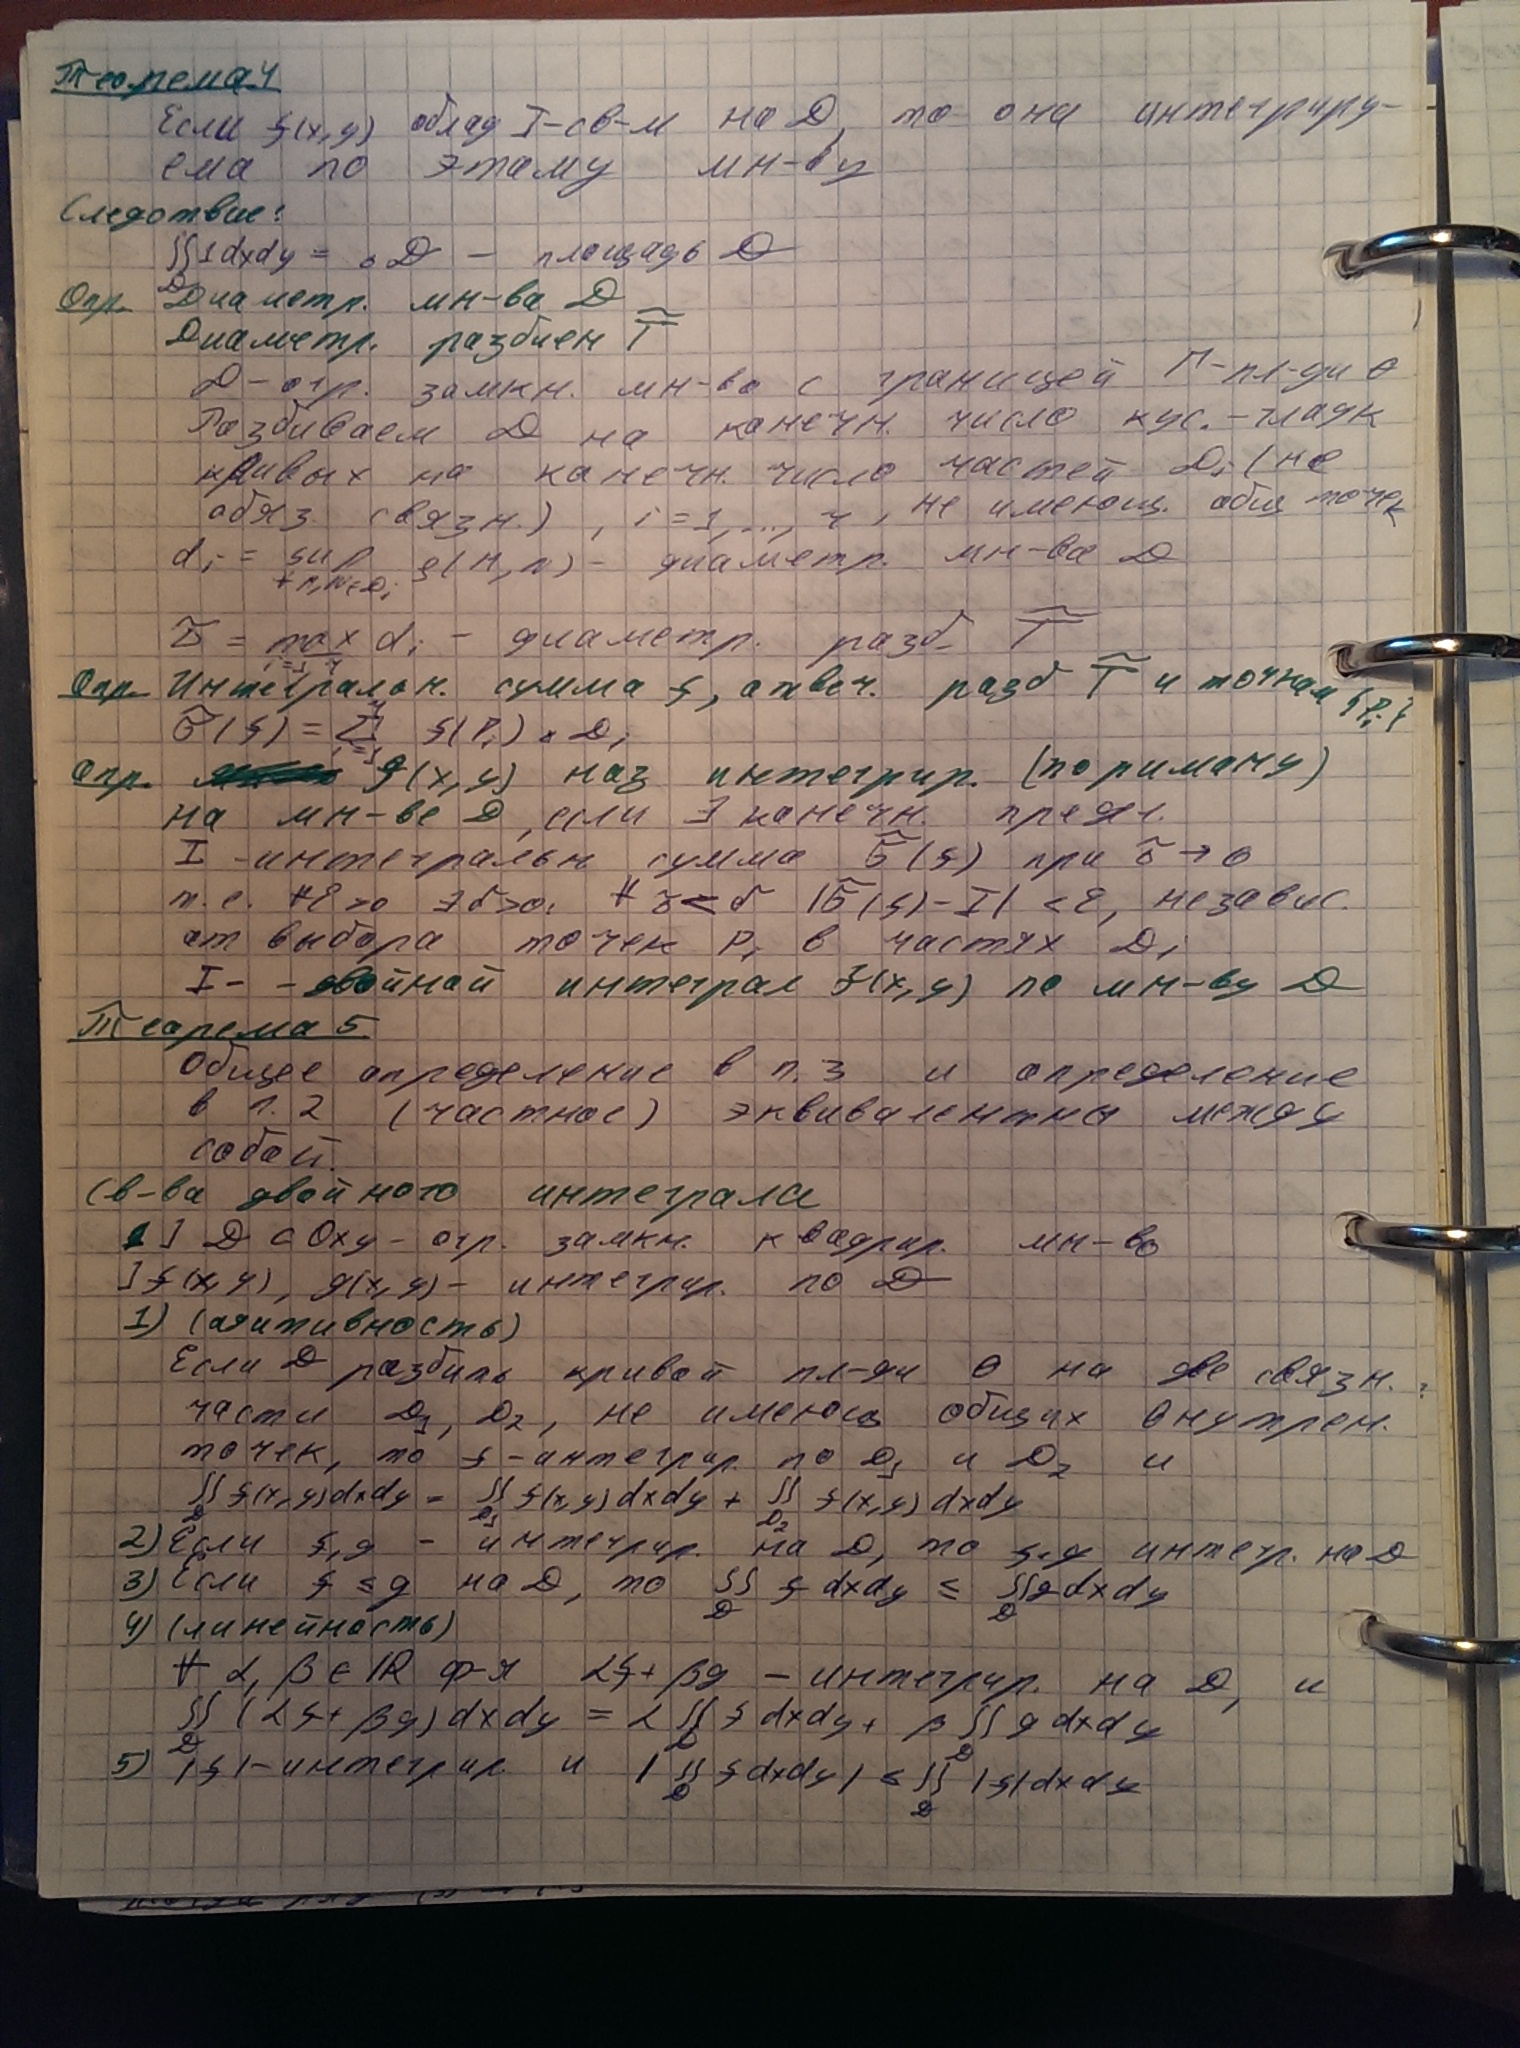 Теорема 4
Если f(x,y) облад I-св-м на D, то она интегриру-
ема по этаму мн-ву
Следствие:
∬1dxdy = ₀D - площадь D
D
Опр. Диаметр. мн-ва D
Диаметр. разбиен T̃
D-огр. замкн. мн-во с границей Г-пл-ди 0
Разбиваем D на канечн. число кус.-гладк
кривых на канечн. число частей Dᵢ (не
обяз. связн.), i=1,..., r, не имеющ. общ точек
dᵢ = sup ρ(M,N) - диаметр. мн-ва D
∀M,N∈Dᵢ
δ̃ = max dᵢ - диаметр. разб. T̃
i=1,r
Опр. Интегральн. сумма f, отвеч. разб T̃ и точкам {Pᵢ}
σ̃(f) = Σ f(Pᵢ) ₀Dᵢ
Опр. f(x,y) наз интегрир. (по риману)
на мн-ве D, если ∃ канечн. предел.
I -интегральн сумма σ̃(f) при δ̃→0
т.е. ∀ε>0 ∃δ>0: ∀ δ̃<δ |σ̃(f)-I| <ε, независ.
от выбора точек Pᵢ в частях Dᵢ
I- -двойной интеграл f(x,y) по мн-ву D
Теорема 5
Общее определение в п.3 и определение
в п.2 (частное) эквивалентны между
собой.
Св-ва двойного интеграла
] D ⊂ Oxy - огр. замкн. квадрир. мн-во
] f(x,y), g(x,y) - интегрир. по D
1) (адитивность)
Если D разбить кривой пл-ди 0 на две связн.
части D₁, D₂, не имеющ общих внутрен.
точек, то f-интегрир. по D₁ и D₂ и
∬f(x,y)dxdy = ∬f(x,y)dxdy + ∬ f(x,y)dxdy
D D₁ D₂
2) Если f,g - интегрир. на D, то f·g интегр. на D
3) Если f ≤ g на D, то ∬ f dxdy ≤ ∬gdxdy
D D
4) (линейность)
∀ α, β ∈ ℝ ф-я αf + βg - интегрир. на D, и
∬ (αf + βg)dxdy = α ∬ f dxdy + β ∬ g dxdy
D D D
5) |f|-интегрир. и |∬ fdxdy| ≤ ∬ |f|dxdy
D D